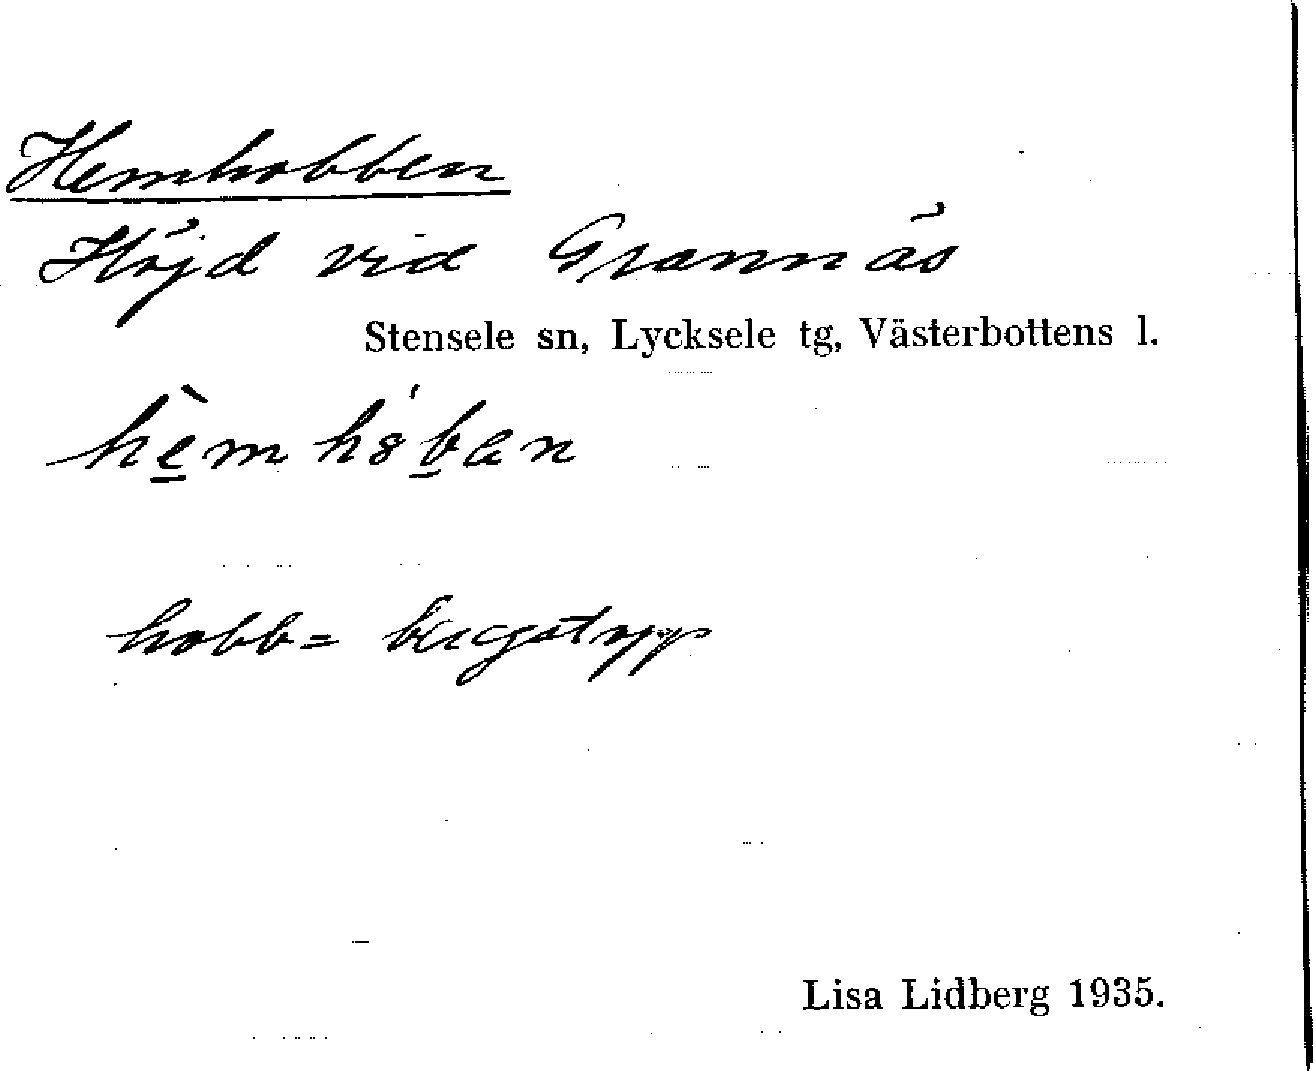 Hemhobben
Höjd vid Grannäs
Stensele sn, Lycksele tg, Västerbottens l.
hè̱mh8́ḇan
hobb = bergstopp
Lisa Lidberg 1935.